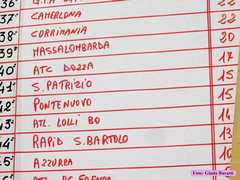 37° CAMERLONA 22
38° CORRIMANIA 22
39° MASSALOMBARDA 20
40° ATC DOZZA 17
41° S. PATRIZIO 15
42° PONTENUOVO
43° ATL. LOLLI BO
44° RAPID S. BARTOLO
45° AZZURRA
Foto: Giusto Baratti